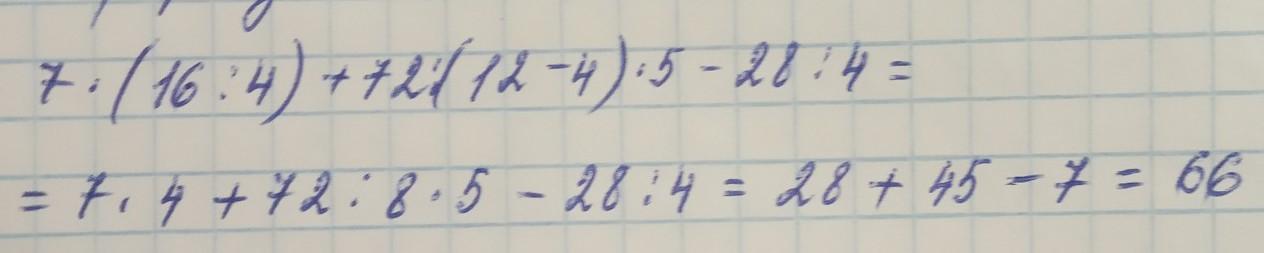 7 · (16 : 4) + 72 : (12 - 4) · 5 - 28 : 4 =
= 7 · 4 + 72 : 8 · 5 - 28 : 4 = 28 + 45 - 7 = 66